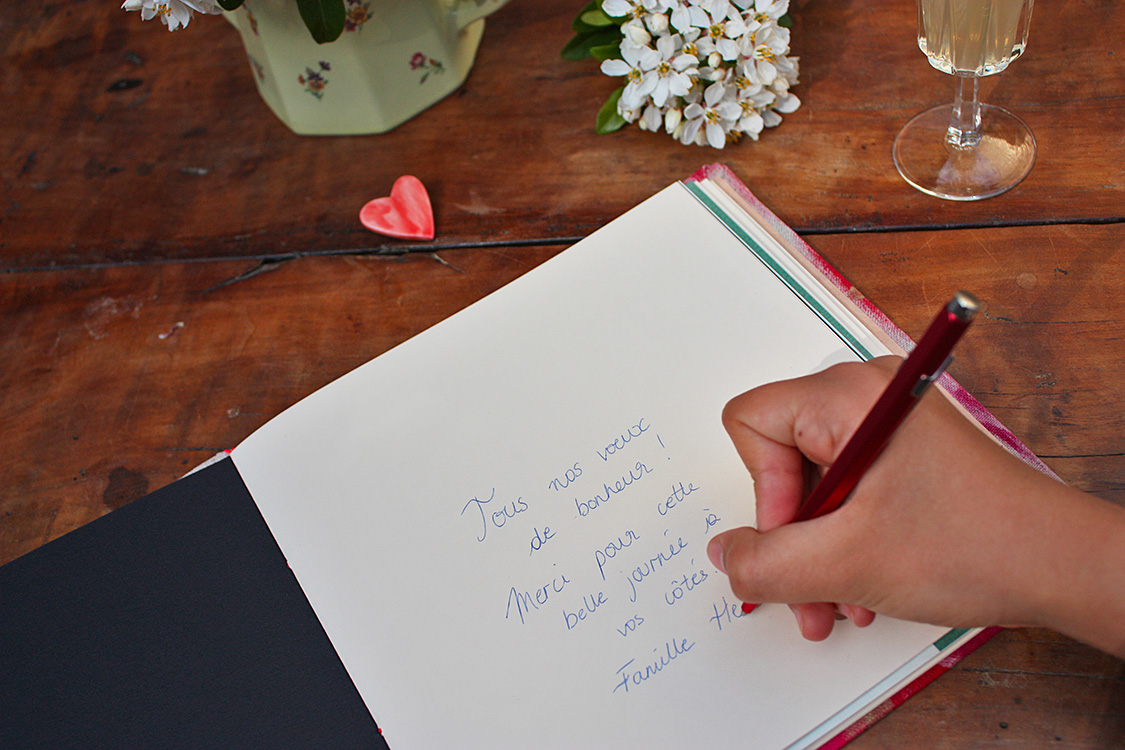 Tous nos vœux
de bonheur !
Merci pour cette
belle journée à
vos côtés.
Famille He